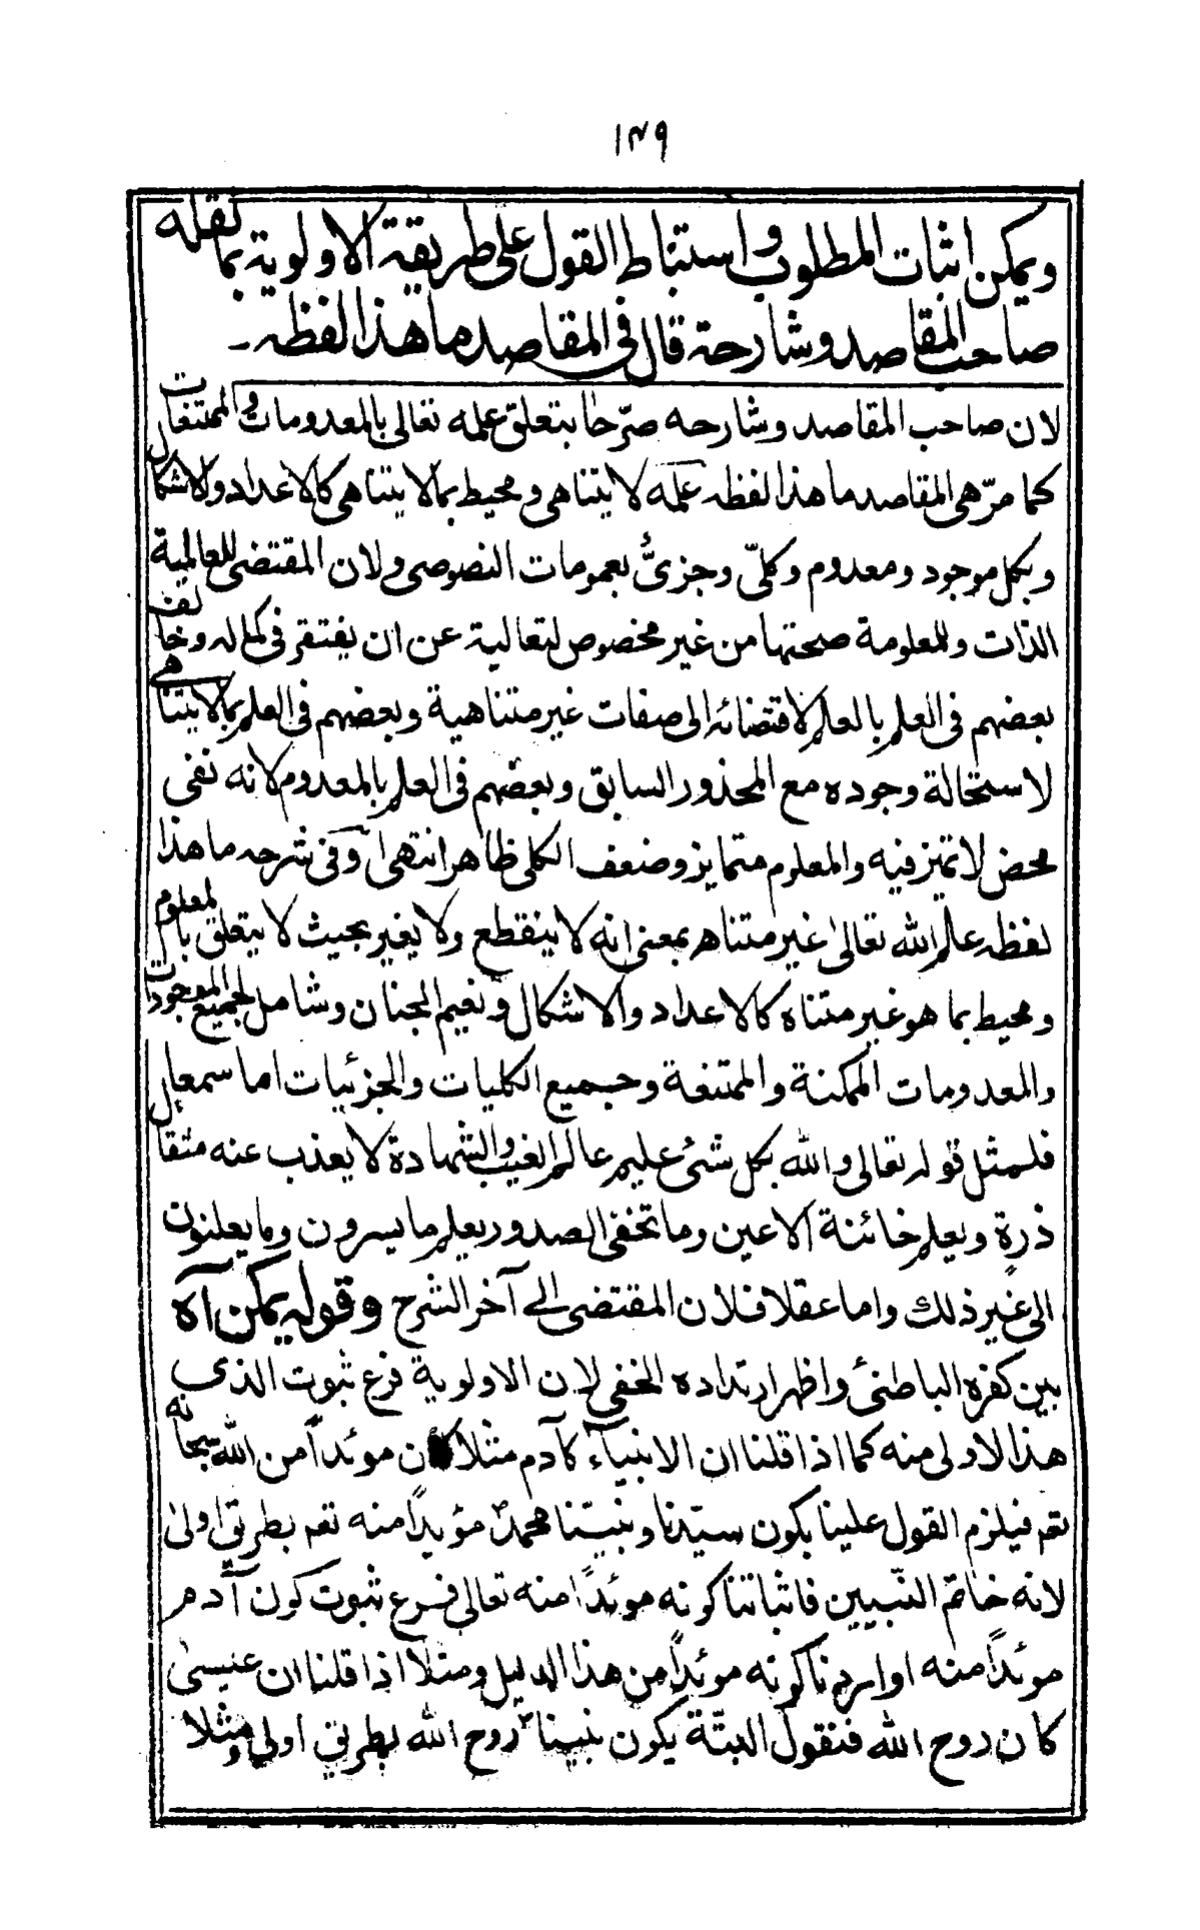 ١٣٩
ويمكن اثبات المطلوب واستنباط القول على طريقة الاولوية بما نقله
صاحب المقاصد وشارحة قال في المقاصد ما هذا لفظه۔
لان صاحب المقاصد وشارحه صرّحا بتعلق علمه تعالى بالمعدومات والممتنعات
كما مرّ هى المقاصد ما هذا لفظه علمه لا يتناهى ومحيط بما لا يتناهى كالاعداد والاشكال
وبكل موجود ومعدوم وكلىّ وجزىٔ بعمومات النصوصى ولان المقتضى للعالمية
الذات وللمعلومة صحتها من غير مخصوص لتعالية عن ان يفتقر فى كماله وخالف
بعضهم فى العلم بالعلم لاقتضائه الى صفات غير متناهية وبعضهم فى العلم بما لا يتناهى
لاستحالة وجوده مع المحذور السابق وبعضهم فى العلم بالمعدوم لانه نفى
محض لا تميز فيه والمعلوم متمايز وضعف الكلى ظاهر انتهى وفى شرحه ما هذا
لفظه عالم الله تعالىٰ غير متناه بمعنى انه لا ينقطع ولا يغير بحيث لا يتعلق بالمعلوم
ومحيط بما هو غير متناه كالاعداد والاشكال ونعيم الجنان وشامل لجميع الموجودات
والمعدومات الممكنة والممتنعة وجميع الكليات والجزئيات اما سمعا
فلمثل قوله تعالى والله بكل شئ عليم عالم الغيب والشهادة لا يعذب عنه مثقال
ذرة ويعلم خائنة الاعين وما تخفى الصدور يعلم ما يسرون وما يعلنون
الى غير ذلك واما عقلا فلان المقتضى الى آخر الشرح وقوله يمكن آه
بين كفره الباطنىٔ واظهر ارتداده الخفى لان الاولوية فرع ثبوت الذى
هذا الاولى منه كما اذا قلنا ان الانبياء كآدم مثلا كان موئداً من الله سبحانه
تعم فيلزم القول علينا بكون سيّدنا ونبيّنا محمدؐ مؤيداً منه تعم بطريق اولىٰ
لانه خاتم النّبيين فاثباتنا كونه موئداً منه تعالى فرع ثبوت كون آدم
موئداً منه او ايردنا كونه موئداً من هذا الدليل ومثلاً اذا قلنا ان عيسىٰ
كان روح الله فنقول البتّة يكون نبينا روح الله بطريق اولى ومثلا